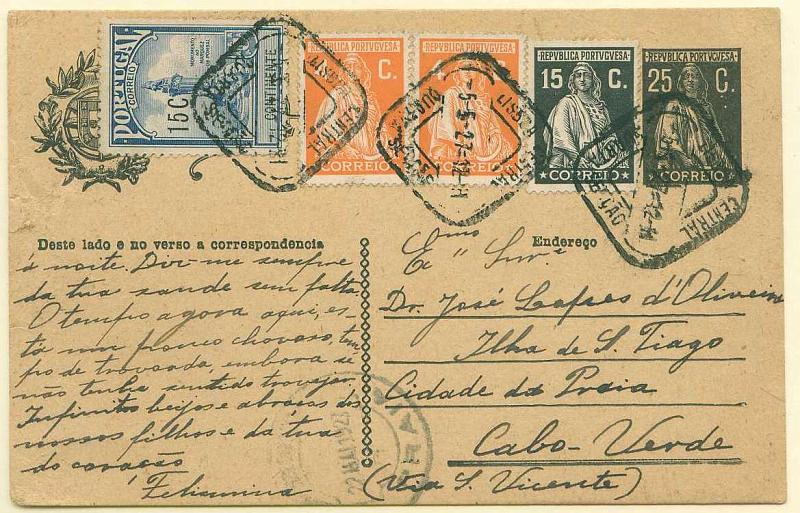 PORTUGAL
CORREIO
MONUMENTO AO MARQUEZ DE POMBAL
15 C
CONTINENTE
REPVBLICA PORTVGVESA
C.
CORREIO
REPVBLICA PORTVGVESA
4 C.
CORREIO
REPVBLICA PORTVGVESA
15 C.
CORREIO
REPVBLICA PORTVGVESA
25 C.
CORREIO
CENTRAL
CENTRAL
CENTRAL
Deste lado e no verso a correspondencia
Endereço
á noite. Diz-me sempre
da tua saude sem falta.
O tempo agora aqui, es-
tá um pouco chuvoso, tem
po de trovoada, embora se
não tenha sentido trovejar.
Infinitos beijos e abraços dos
nossos filhos e da tua
do coração
Felismina
Exmo Snr.
Dr. José Lopes d'Oliveira
Ilha de S. Tiago
Cidade da Praia
Cabo-Verde
(Via S. Vicente)
PRAIA